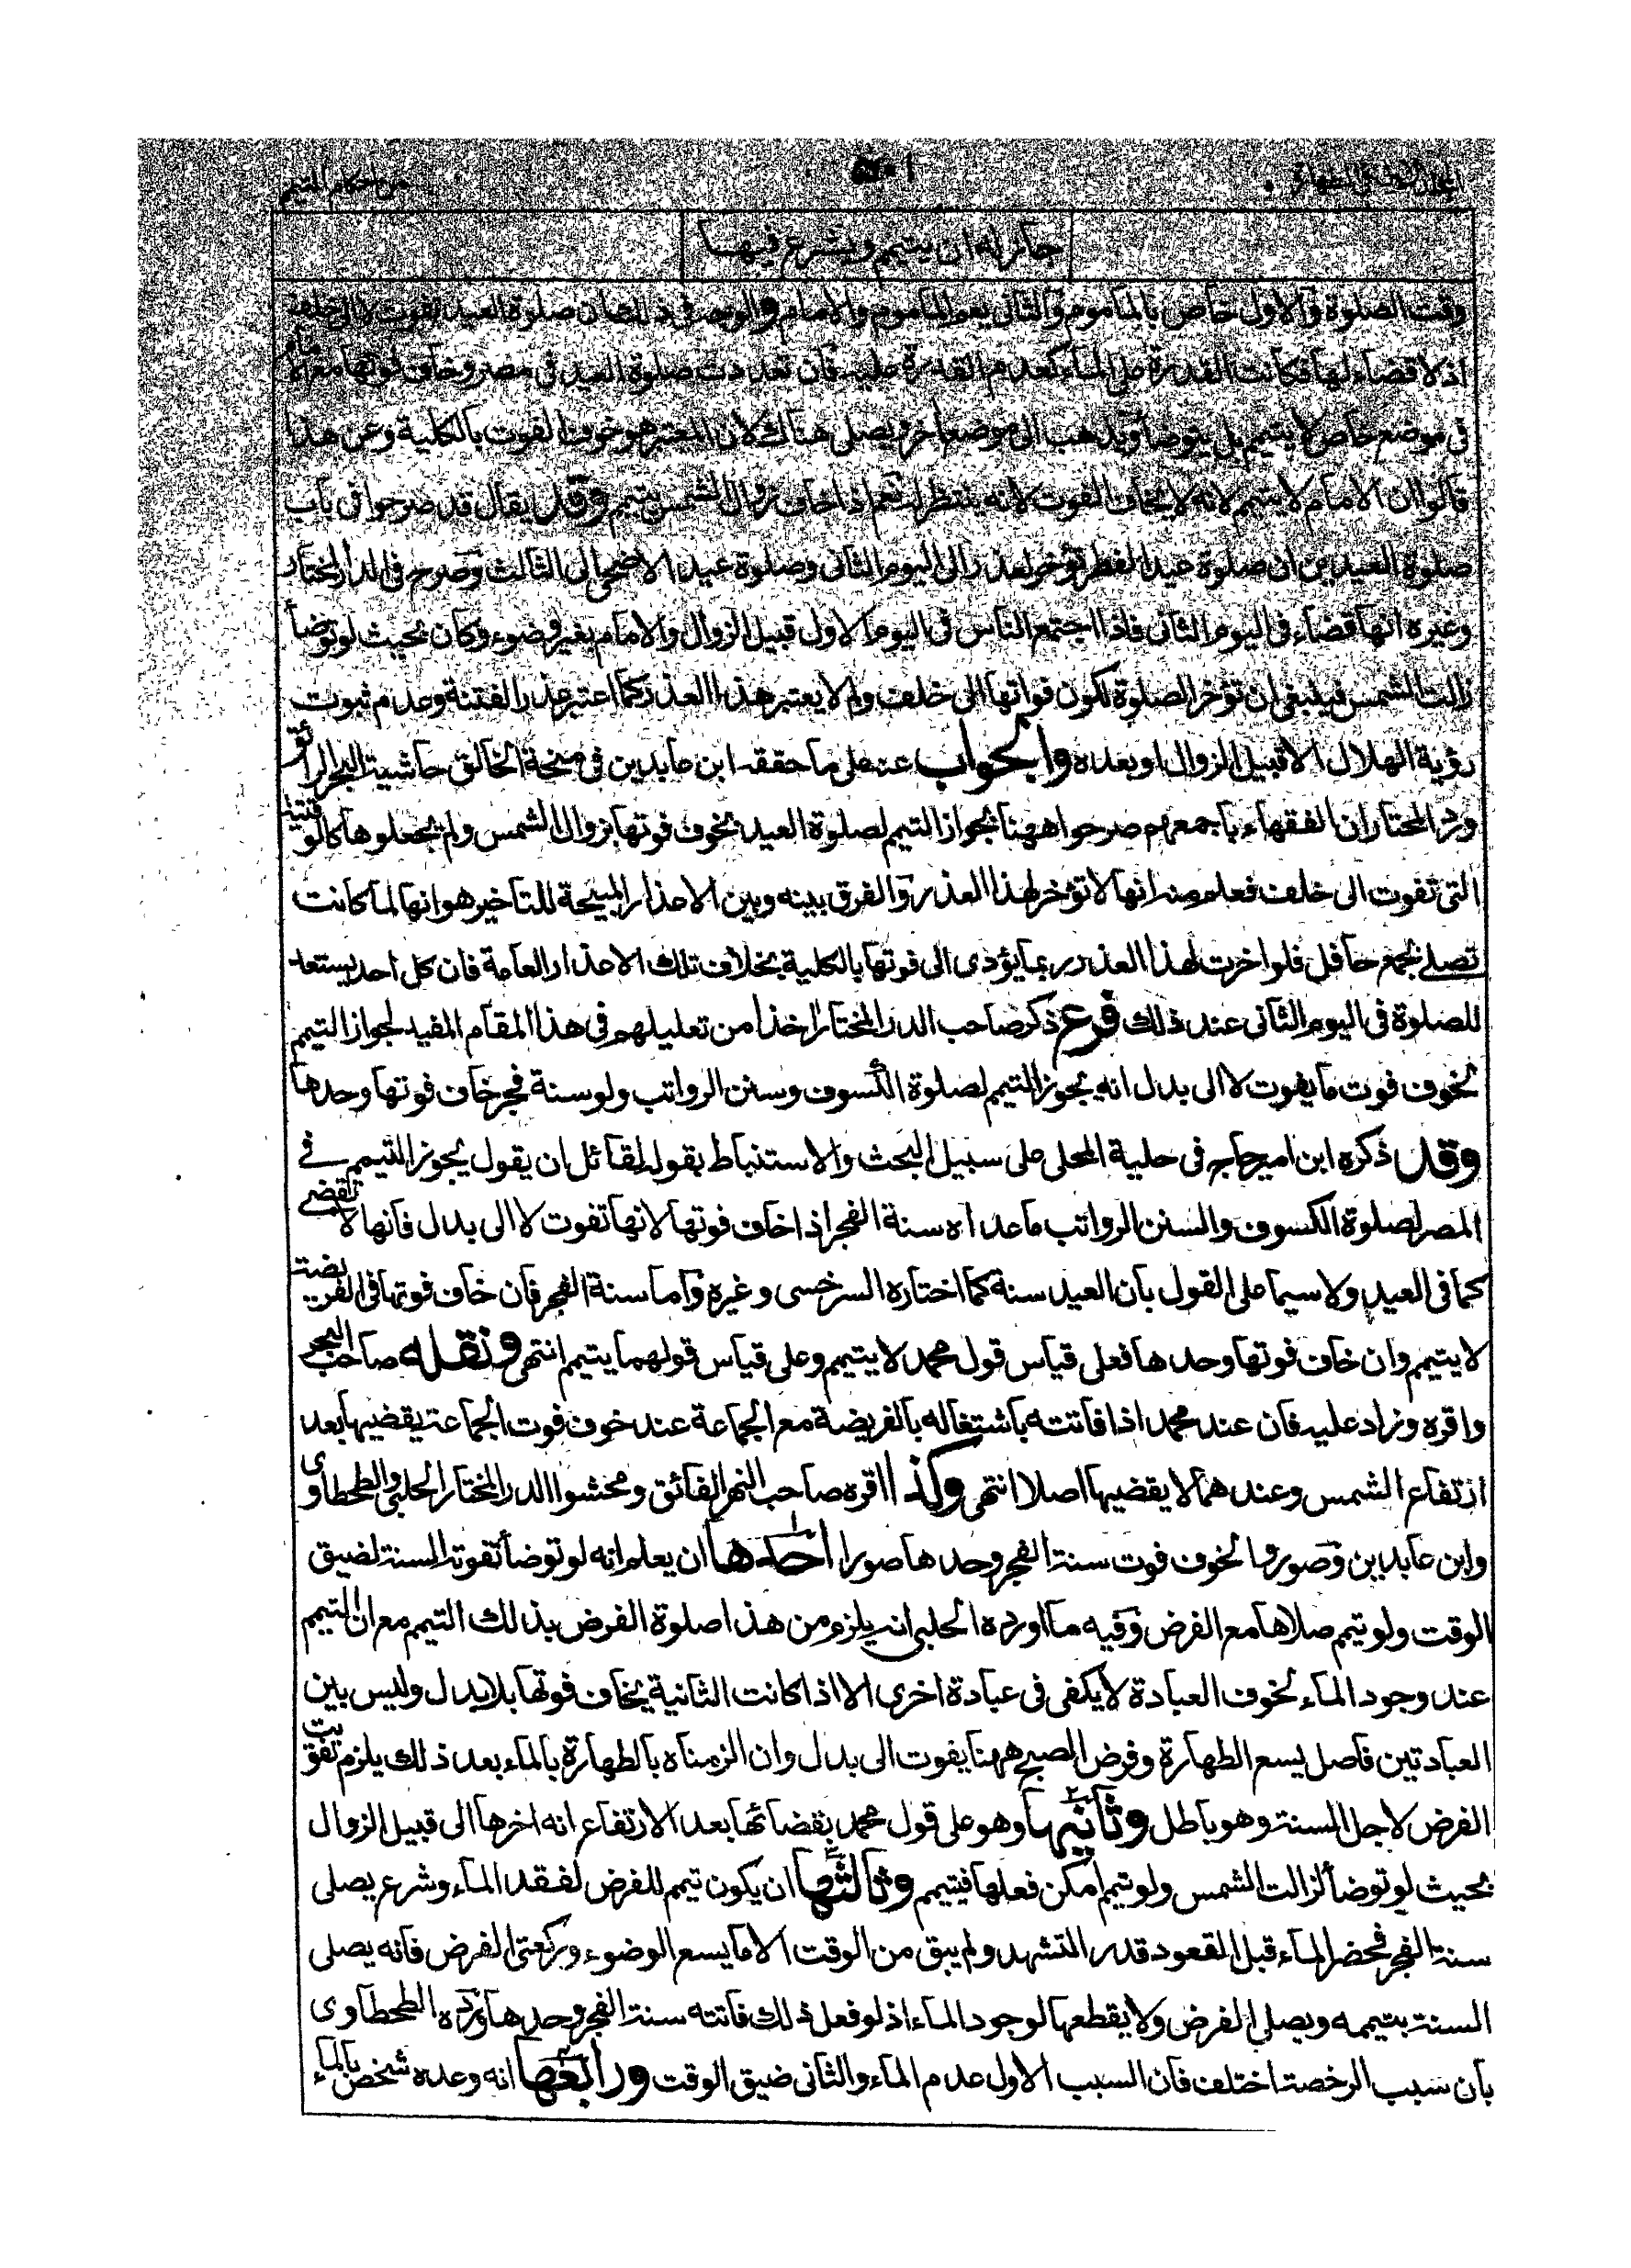 من احكام التيمم
جاز له ان يتيمم ويشرع فيها
وقت الصلوة والاول خاص بالماموم والثانى يعم الماموم والامام والوجه فى ذلك ان صلوة العيد تفوت لا الى خلف
اذ لا قضاء لها فكانت القدرة على الماء كعدم القدرة عليه فان تعددت صلوة العيد فى مصر وخاف فوتها مع الامام
فى موضع خاص لا يتيمم بل يتوضأ ويذهب الى موضع اخر ويصلى هناك لان المعتبر هو خوف الفوت بالكلية وعن هذا
قالوا ان الامام لا يتيمم لانه لا يخاف الفوت لانه ينتظر له نعم اذا خاف زوال الشمس يتيمم وقد يقال قد صرحوا فى باب
صلوة العيدين ان صلوة عيد الفطر تؤخر لعذر الى اليوم الثانى وصلوة عيد الاضحى الى الثالث وصرح فى الدر المختار
وغيره انها قضاء فى اليوم الثانى فاذا اجتمع الناس فى اليوم الاول قبيل الزوال والامام بغير وضوء وكان بحيث لو توضأ
زالت الشمس فينبغى ان تؤخر الصلوة لكون فواتها الى خلف ولم لا يعتبر هذا العذر كما اعتبر عذر الفتنة وعدم ثبوت
رؤية الهلال الا قبيل الزوال او بعده والجواب عنه على ما حققه ابن عابدين فى منحة الخالق حاشية البحر الرائق
ورد المحتار ان الفقهاء باجمعهم صرحوا ههنا بجواز التيمم لصلوة العيد بخوف فوتها بزوال الشمس ولم يجعلوها كالوقتية
التى تفوت الى خلف فعلم منه انها لا تؤخر لهذا العذر والفرق بينه وبين الاعذار المبيحة للتاخير هو انها لما كانت
تصلے بجمع حافل فلو اخرت لهذا العذر ربما يؤدى الى فوتها بالكلية بخلاف تلك الاعذار العامة فان كل احد يستعد
للصلوة فى اليوم الثانى عند ذلك فرع ذكر صاحب الدر المختار اخذا من تعليلهم فى هذا المقام المفيد لجواز التيمم
لخوف فوت ما يفوت لا الى بدل انه يجوز التيمم لصلوة الكسوف وسنن الرواتب ولو سنة فجر خاف فوتها وحدها
وقد ذكره ابن امير حاج فى حلية المحلى على سبيل البحث والاستنباط بقوله لقائل ان يقول يجوز التيمم فے
المصر لصلوة الكسوف والسنن الرواتب ما عدا سنة الفجر اذا خاف فوتها لانها تفوت لا الى بدل فانها لا تقضے
كما فى العيد ولا سيما على القول بان العيد سنة كما اختاره السرخسى وغيره واما سنة الفجر فان خاف فوتها فى الفريضة
لا يتيمم وان خاف فوتها وحدها فعلى قياس قول محمد لا يتيمم وعلى قياس قولهما يتيمم انتهى ونقله صاحب البحر
واقره وزاد عليه فان عند محمد اذا فاتته باشتغاله بالفريضة مع الجماعة عند خوف فوت الجماعة يقضيها بعد
ارتفاع الشمس وعندهما لا يقضيها اصلا انتهى وكذا اقره صاحب النهر الفائق ومحشوا الدر المختار الحلبى والطحطاوى
وابن عابدين وصوروا لخوف فوت سنة الفجر وحدها صورا احدها ان يعلم انه لو توضأ تفوته السنة لضيق
الوقت ولو تيمم صلاها مع الفرض وفيه ما اورده الحلبى انه يلزم من هذا صلوة الفرض بذلك التيمم مع ان التيمم
عند وجود الماء لخوف العبادة لا يكفى فى عبادة اخرى الا اذا كانت الثانية يخاف فوتها بلا بدل وليس بين
العبادتين فاصل يسع الطهارة وفرض الصبح ههنا يفوت الى بدل وان الزمناه بالطهارة بالماء بعد ذلك يلزم تفويت
الفرض لاجل السنة وهو باطل وثانيها وهو على قول محمد بقضائها بعد الارتفاع انه اخرها الى قبيل الزوال
بحيث لو توضأ لزالت الشمس ولو تيمم امكن فعلها فيتيمم وثالثها ان يكون تيمم للفرض لفقد الماء وشرع يصلى
سنة الفجر فحضر الماء قبل القعود قدر التشهد ولم يبق من الوقت الا ما يسع الوضوء وركعتى الفرض فانه يصلى
السنة بتيممه ويصلى الفرض ولا يقطعها لوجود الماء اذ لو فعل ذلك فاتته سنة الفجر وحدها ورده الطحطاوى
بان سبب الرخصة اختلف فان السبب الاول عدم الماء والثانى ضيق الوقت ورابعها انه وعده شخص بالماء